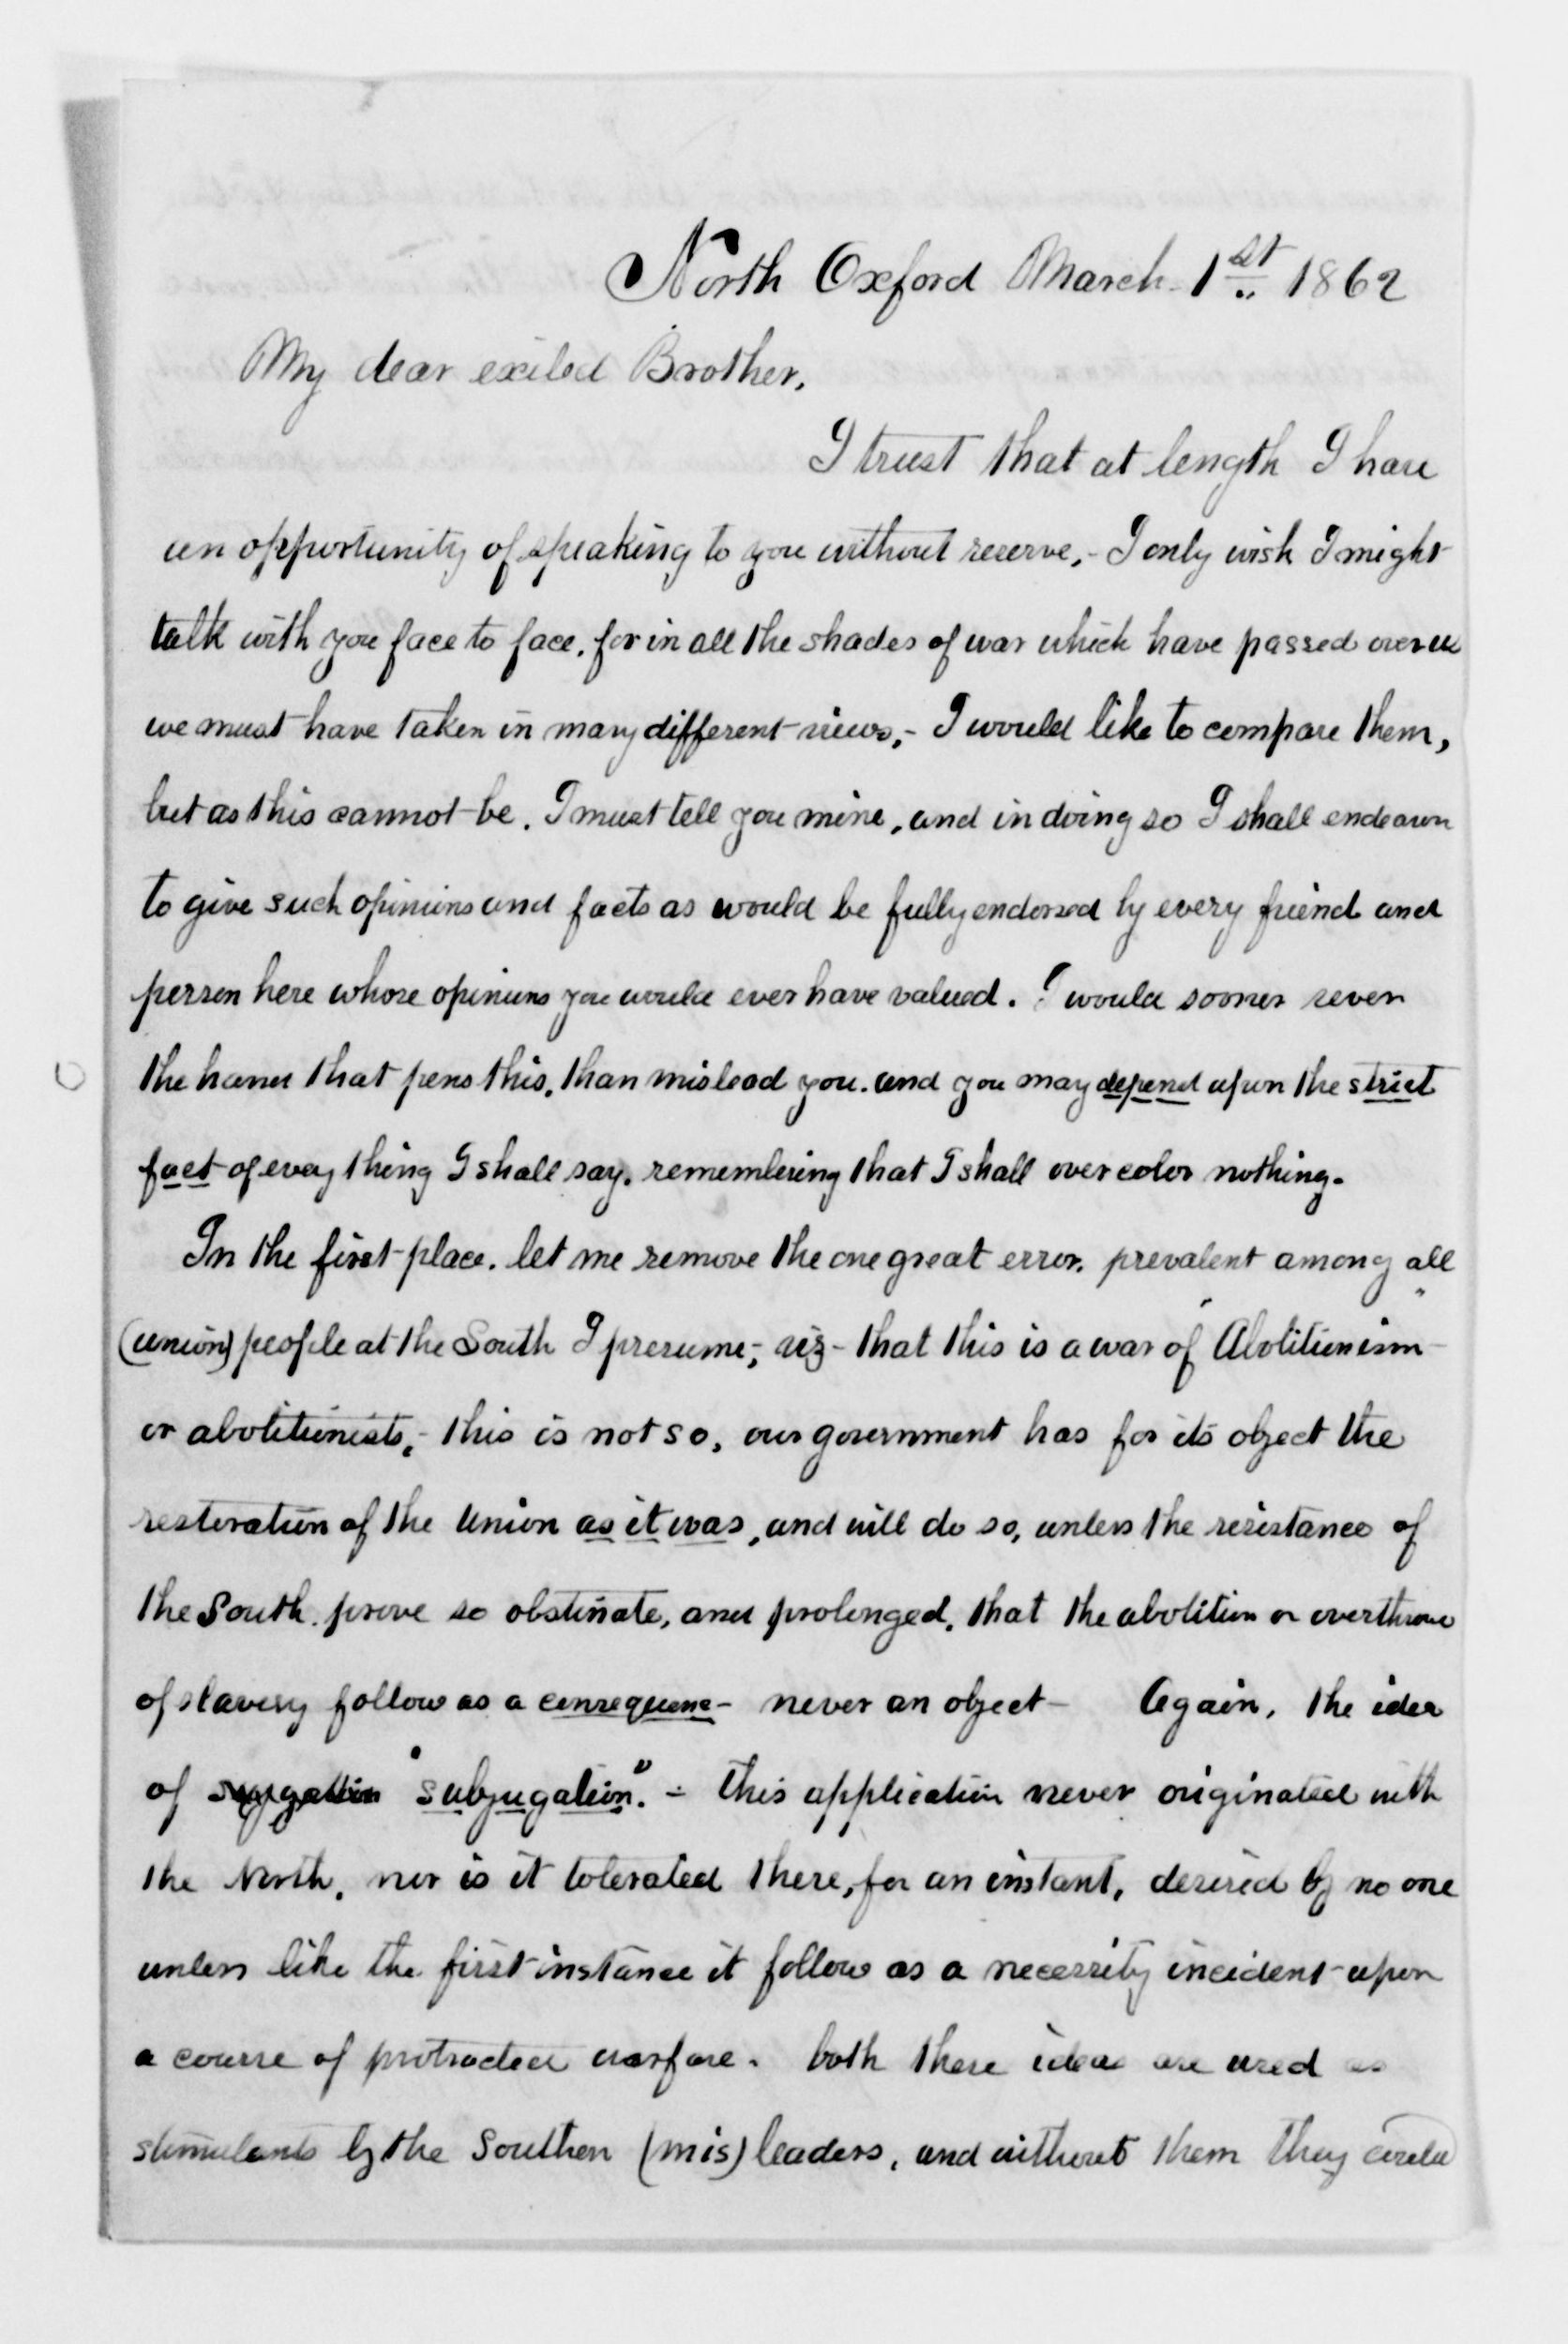 North Oxford March 1st 1862
My dear exiled Brother,
I trust that at length I have
an opportunity of speaking to you without reserve,- I only wish I might
talk with you face to face, for in all the shades of war which have passed over us
we must have taken in many different views,- I would like to compare them,
but as this cannot be. I must tell you mine, and in doing so I shall endeavor
to give such opinions and facts as would be fully endorsed by every friend and
person here whose opinions you would ever have valued. I would sooner sever
the hand that pens this, than mislead you. and you may depend upon the strict
fact of every thing I shall say. remembering that I shall over color nothing.
In the first place. let me remove the one great error. prevalent among all
(union) people at the South I presume,- viz - that this is a war of "Abolitionism"
or abolitionists,- this is not so, our government has for its object the
restoration of the Union as it was, and will do so, unless the resistance of
the South prove so obstinate, and prolonged, that the abolition or overthrow
of slavery follow as a consequence - never an object - Again, the idea
of "subjugation". - this application never originated with
the North, nor is it tolerated there, for an instant, desired by no one
unless like the first instance it follow as a necessity incident upon
a course of protracted warfare. both these ideas are used as
stimulants by the Southern (mis) leaders, and without them they could